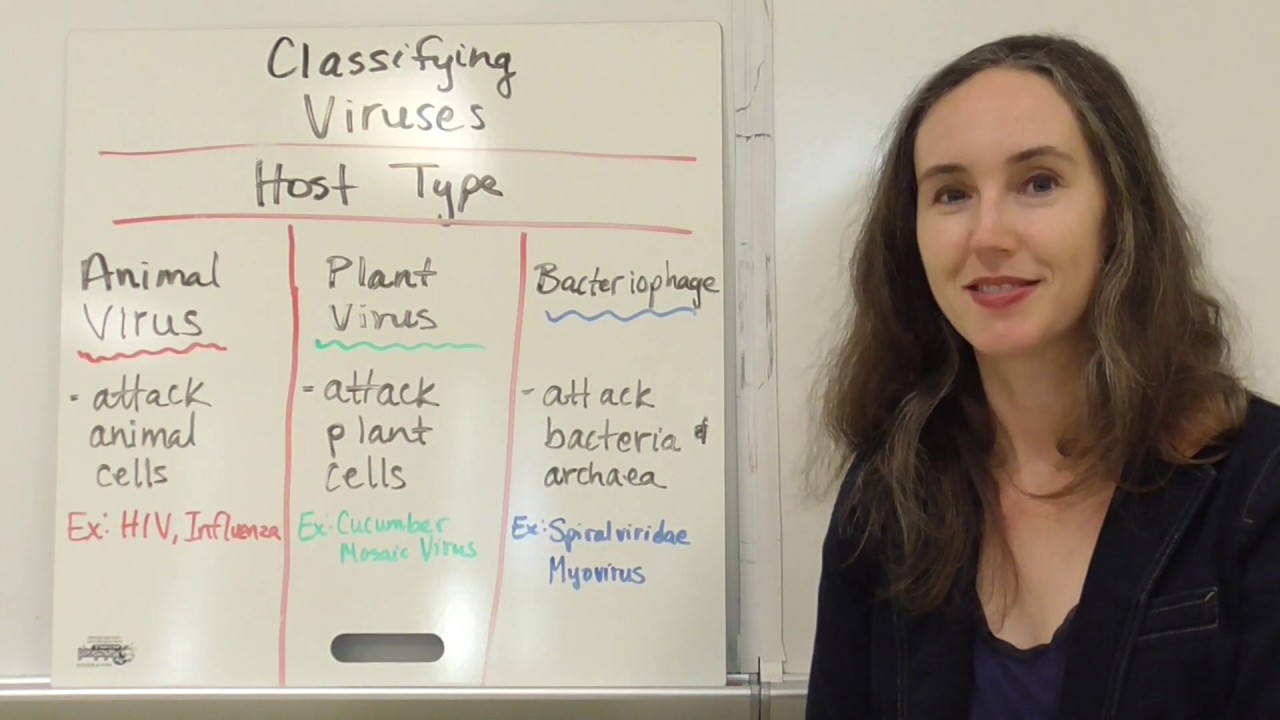 Classifying
Viruses
Host Type
Animal
Virus
- attack
animal
cells
Ex: HIV, Influenza
Plant
Virus
- attack
plant
cells
Ex: Cucumber
Mosaic Virus
Bacteriophage
- attack
bacteria &
archaea
Ex: Spiralviridae
Myovirus